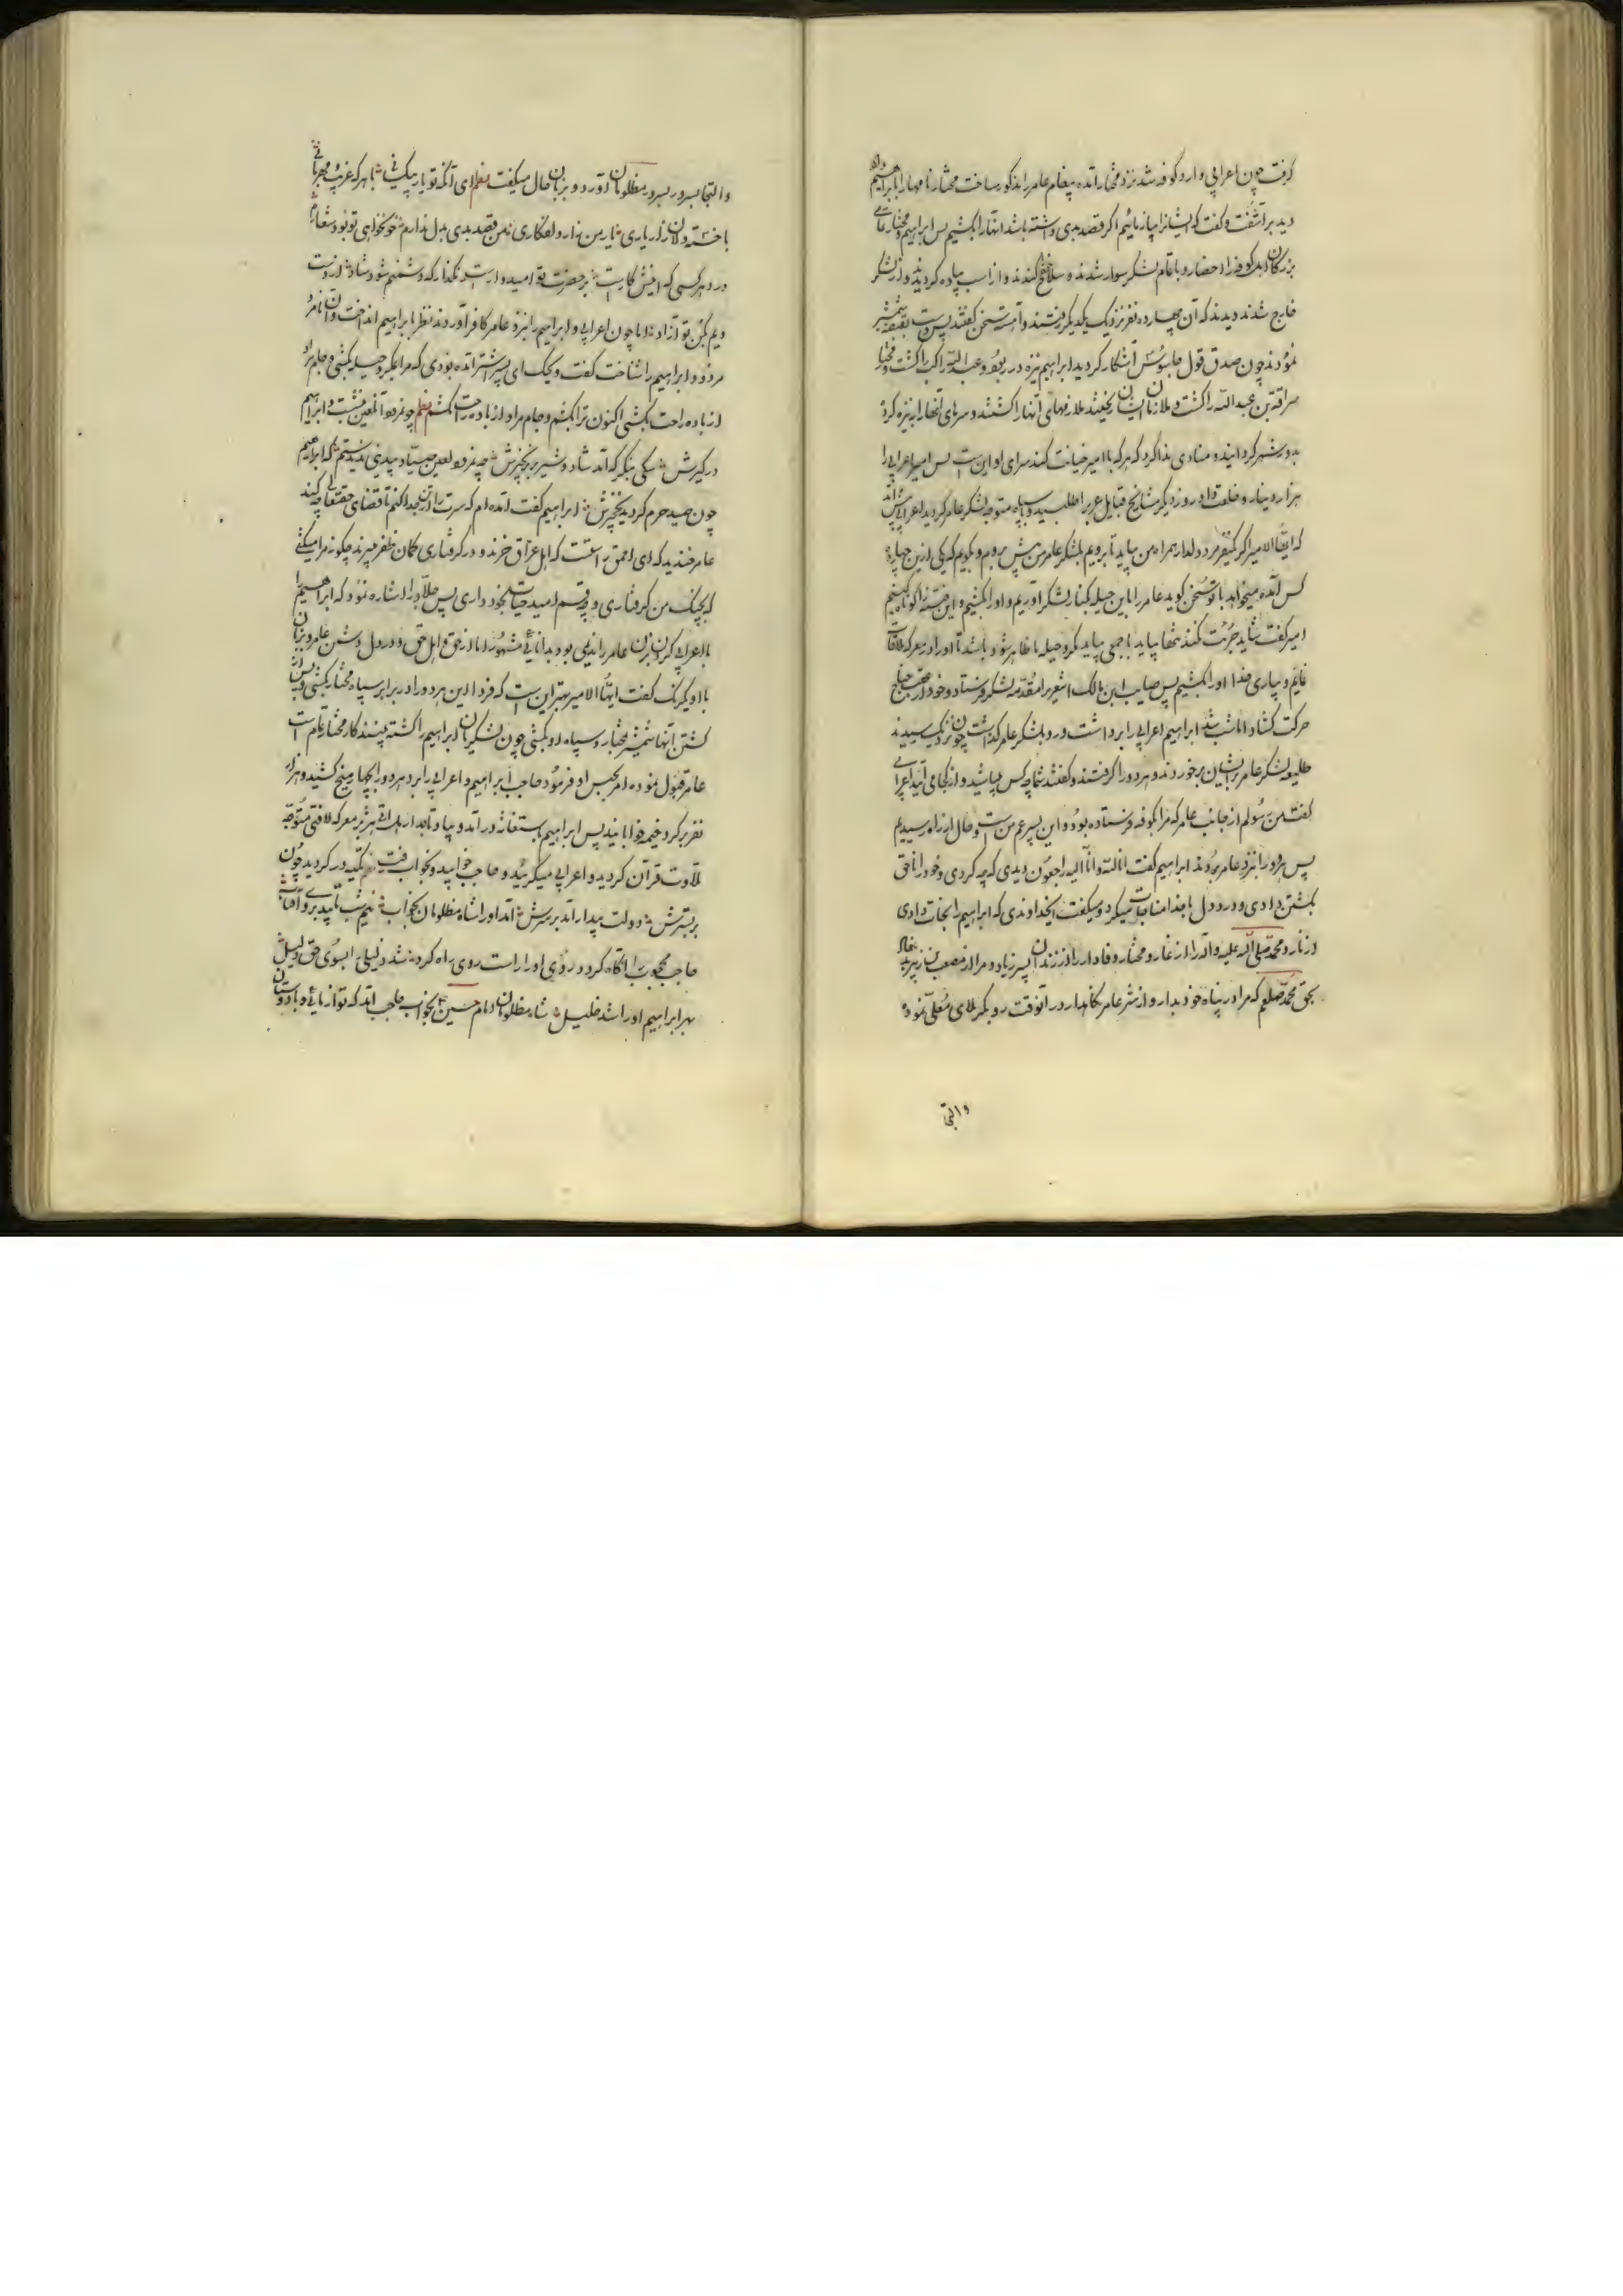 گرفت چون اعرابی وارد کوفه شد نزد مختار آمده پیغام عامر را مذکور ساخت مختار نامها را بابراهیم داد
دید بر آشفت و گفت که ایشانرا بیازمائیم اگر قصد بدی داشته باشند آنها را بکشیم پس ابراهیم و مختار تمامی
بزرکان اهل کوفه را احضار و با تمام لشکر سوار شدند و سلاح کندند و از اسب پیاده کردیدند و از لشکر
خارج شدند دیدند که آن چهارده نفر نزدیک یکدیکر رفتند و آهسته سخن کفتند پس دست بقبضه شمشیر
نمودند چون صدق قول جاسوس آشکار کردید ابراهیم نیزه در ربود و عبدالله را کشت و مختار
سراقة بن عبدالله را کشت و ملازمان ایشان ریختند ملازمهای آنها را کشتند و سرهای آنها را بر نیزه کرد
بدور شهر کردانیده منادی ندا کرد که هر که با امیر خیانت کند سزای او این است پس امیر اعرابی را
هزار دینار و خلعت داد روز دیکر مشایخ قبایل عرب را طلبید و با سپاه متوجه لشکر عامر کردید اعرابی پیش آمد
که ایها الامیر اکر یکنفر مرد دلدار همراه من بیاید تا برویم بلشکر عامر من پیش بروم و بکویم که یکی از این چهارده
کس آمده میخواهد با تو سخن کوید عامر را باین حیله بکنار لشکر آوریم و او را بکشیم و این فتنه را کوتاه کنیم
امیر کفت شاید جرئت نکند تنها بیاید با جمعی بیاید مکر و حیله ما ظاهر شود باشد تا او را در معرکه ملاقات
نمایم و بیاری خدا او را بکشیم پس صایب ابن مالک اشعریرا مقدمه لشکر فرستاد و خود از عقب جناح
حرکت کشاد اما شب شد ابراهیم اعرابی را برداشت و رو بلشکر عامر کذاشت چون نزدیک رسیدند
طلیعه لشکر عامر بر ایشان برخوردند و هر دو را کرفتند و کفتند شما چه کس میباشید و از کجا می آئید اعرابی
کفت من رسولم از جانب عامر که مرا بکوفه فرستاده بود و این پسر عم من است و حال از راه رسیدیم
پس هردو را نزد عامر بردند ابراهیم کفت انا لله و انا الیه راجعون دیدی که چه کردی و خود را ناحق
بکشتن دادی و در دل با خدا مناجات میکرد و میکفت ایخداوندی که ابراهیم را نجات دادی
از نار و محمد صلی الله علیه و آله را از غار و مختار وفادار را از زندان پسر زیاد و مرا از مصعب بن زبیر
بحق محمد صلعم که مرا در پناه خود بدار و از شر عامر نکاهدار در آنوقت رو بکربلای معلی نموده
والتجا
والتجا بسرور مظلومان آورد و بزبان حال میکفت نظم ای آنکه تو یار بیکسانی با هر که غریب مهربانی
باخته دلان زار یاری یار من زار و دلفکاری من قصد بدی بدل ندارم خونخواهی تو بود شعارم
در دهر کسی که اینش کار است بر حضرت تو امیدوار است مکذار که دشمنم شود شاد از دست
ویم بکن تو آزاد اما چون اعرابی و ابراهیم را نزد عامر کافر آوردند نظر بابراهیم انداخت و آن نامرد
مردود ابراهیم را شناخت کفت ویحک ای پسر اشتر آمده بودی که مرا بمکر و حیله بکشی و جام مراد
از باده راحت بکشی اکنون ترا بکشم و جام مراد از باده راحت کشم نظم چو نمرود آن لعین بنشست و ابراهیم
درکیرش سکی بنکر که آمد شاد و شیر بزنجیرش چه نمرود لعین صیاد بیدینی ندیدستم که ابراهیم
چون صید حرم کردید نخجیرش ابراهیم کفت آمده ام که سرت را از تن جدا کنم تا قضای حقتعالی چه کند
عامر خندید که ای احمق راستست که اهل عراق خرند و در کرفتاری کمان ظفر میبرند چکونه مرا میکشی
که بچنک من کرفتاری و چه قسم امید حیات بخود داری پس جلاد را اشاره نمود که ابراهیم را
با اعرابی کردن بزن عامر را ندیمی بود بدانائی مشهور اما از حق و اهل حق و در دل دشمن عامر و بزبان
با او یکرنک کفت ایها الامیر بهتر این است که فردا این هر دو را در برابر سپاه مختار بکشی و پس از
کشتن آنها شمشیر بمختار و سپاه او بکشی چون لشکریان ابراهیم را کشته بینند کار مختار تمام است
عامر قبول نموده امر بحبس او فرمود حاجب ابراهیم و اعرابی را برد هر دو را بچهار میخ کشید و هزار
نفر بر کرد خیمه خوابانید پس ابراهیم باستغاثه درآمد و بیاد تاجدار هل اتی هژبر معرکه لافتی متوجه
تلاوت قرآن کردید و اعرابی میکریید و حاجب خوابید و بخواب رفت نظم تکیه در کردید چون
بر بسترش دولت بیدار آمد بر سرش آمد او را شاه مظلومان بخواب نیم شب تابید بروی آفتاب
حاجب محجوب را آکاه کرد روی او را راست روی راه کرد شد دلیلی را بسوی حق دلیل
بهر ابراهیم او را شد خلیل شاه مظلومان امام حسین ع بخواب حاجب آمد که تو از مائی و با دوستان